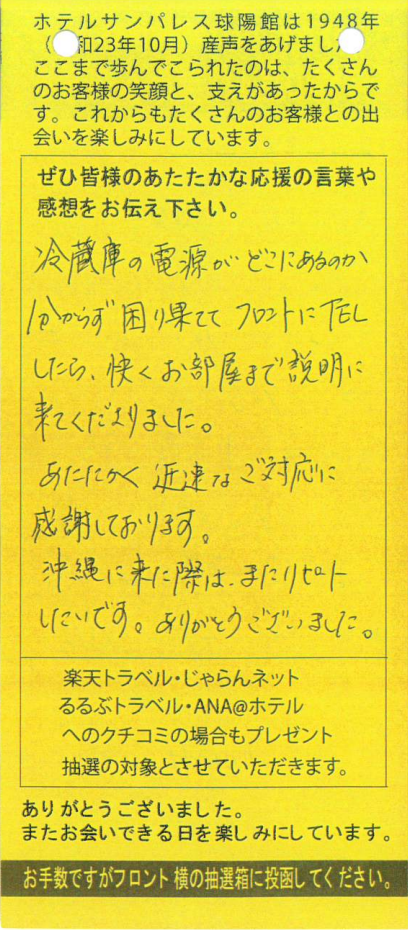 ホテルサンパレス球陽館は1948年
(和23年10月)産声をあげました
ここまで歩んでこられたのは、たくさん
のお客様の笑顔と、支えがあったからで
す。これからもたくさんのお客様との出
会いを楽しみにしています。
ぜひ皆様のあたたかな応援の言葉や
感想をお伝え下さい。
冷蔵庫の電源がどこにあるのか
分からず困り果ててフロントにTEL
したら、快くお部屋まで説明に
来てくださりました。
あたたかく迅速なご対応に
感謝しております。
沖縄に来た際は、またリピート
したいです。ありがとうございました。
楽天トラベル・じゃらんネット
るるぶトラベル・ANA@ホテル
へのクチコミの場合もプレゼント
抽選の対象とさせていただきます。
ありがとうございました。
またお会いできる日を楽しみにしています。
お手数ですがフロント横の抽選箱に投函してください。